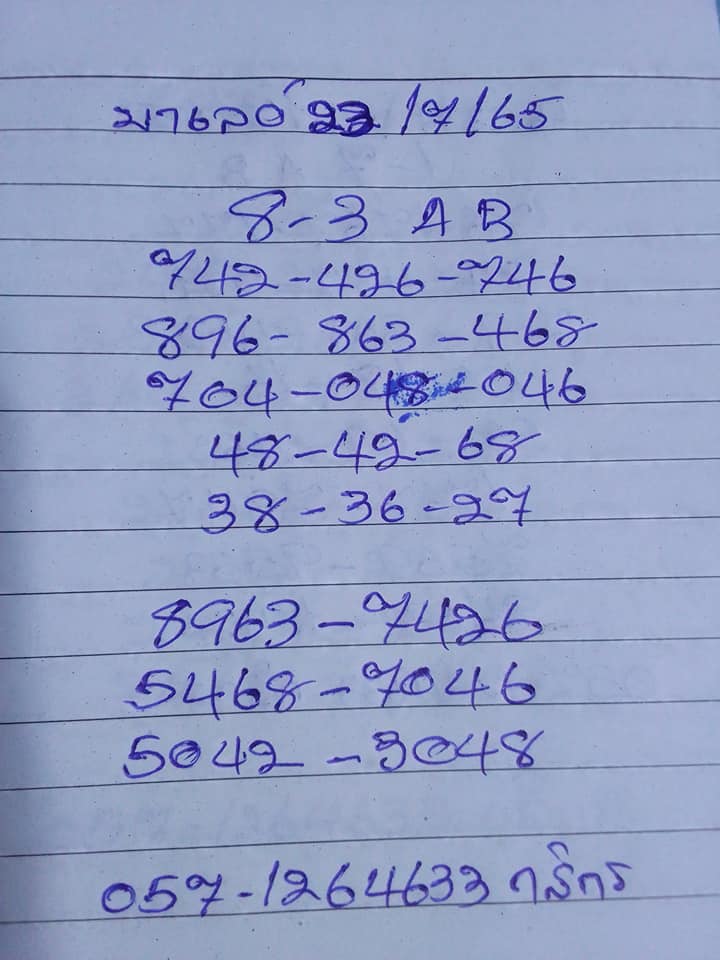 มาเลย์ 23/7/65
8-3 A B
742-426-746
896-863-468
704-048-046
48-42-68
38-36-27
8963-7426
5468-7046
5042-3048
057-1264633 กสิกร